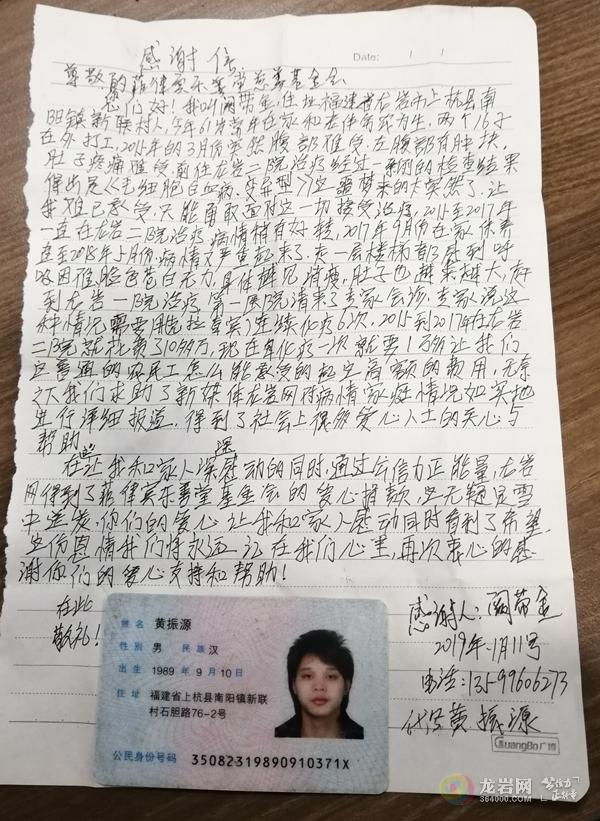 感谢信
Date: / /
尊敬的菲律宾乐善堂慈善基金会
您们好！我叫阙荣金，住址福建省龙岩市上杭县南
阳镇新联村人，今年61岁常年在家和老伴务农为生，两个儿子
在外打工，2014年的3月份突然腹部难受，左腹部有肿块，
肚子疼痛难受，前往龙岩二院治疗经过一系列的检查结果
得出是《毛细胞白血病，变异型》这噩梦来的太突然了，让
我难已承受，只能勇敢面对这一切接受治疗，2015至2017年
一直在龙岩二院治疗，病情稍有好转，2017年9月份在家休养
直至2018年5月份，病情又严重起来了，走一层楼梯都感到呼
吸困难脸色苍白无力，身体越见消瘦，肚子也越来越大，庭
到龙岩一院治疗，第一医院请来了专家会诊，专家说这
种情况需要用克拉屈宾连续化疗6次，2015到2017年在龙岩
二院就花费了10多万，现在单化疗一次就要1万多让我们
这普通的农民工怎么能承受的起这高额的费用，无奈
之大我们求助了新媒体龙岩网对病情家庭情况如实地
进行详细报道，得到了社会上很多爱心人士的关心与
帮助
在让我和家人深深感动的同时，通过公信力正能量，龙岩
网得到了菲律宾乐善堂基金会的爱心捐款，这无疑是雪
中送炭，你们的爱心让我和家人感动同时看到了希望
这份恩情我们将永远记在我们心里，再次衷心的感
谢你们的爱心支持和帮助！
在此
敬礼！
感谢人：阙荣金
2019年1月11号
电话：13599606273
代写黄振源
GuangBo广博
姓名 黄振源
性别 男 民族 汉
出生 1989 年 9 月 10 日
住址 福建省上杭县南阳镇新联
村石胆路76-2号
公民身份号码 35082319890910371X
龙岩网
364000.com
公信力
正能量